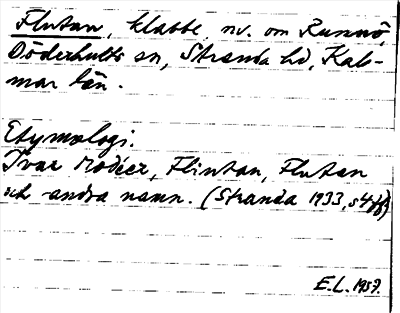 Flutan, klabbe, nv. om Runnö,
Döderhults sn, Stranda hd, Kal-
mar län.
Etymologi.
Ivar Modéer, Flintan, Flutan
och andra namn. (Stranda 1933, s 4 ff)
E.L. 1937.